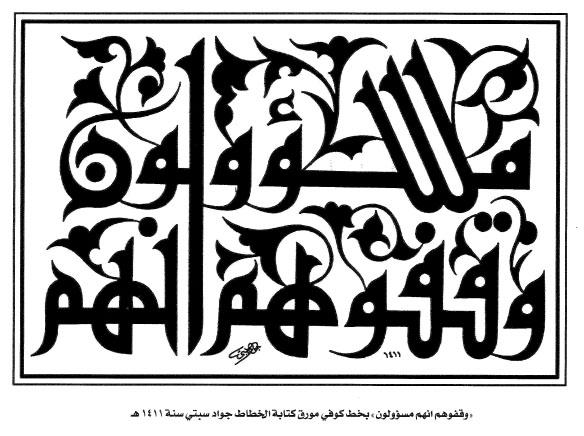 وقفوهم انهم
مسؤولون
١٤١١
«وقفوهم انهم مسؤولون» بخط كوفي مورق كتابة الخطاط جواد سبتي سنة ١٤١١ هـ